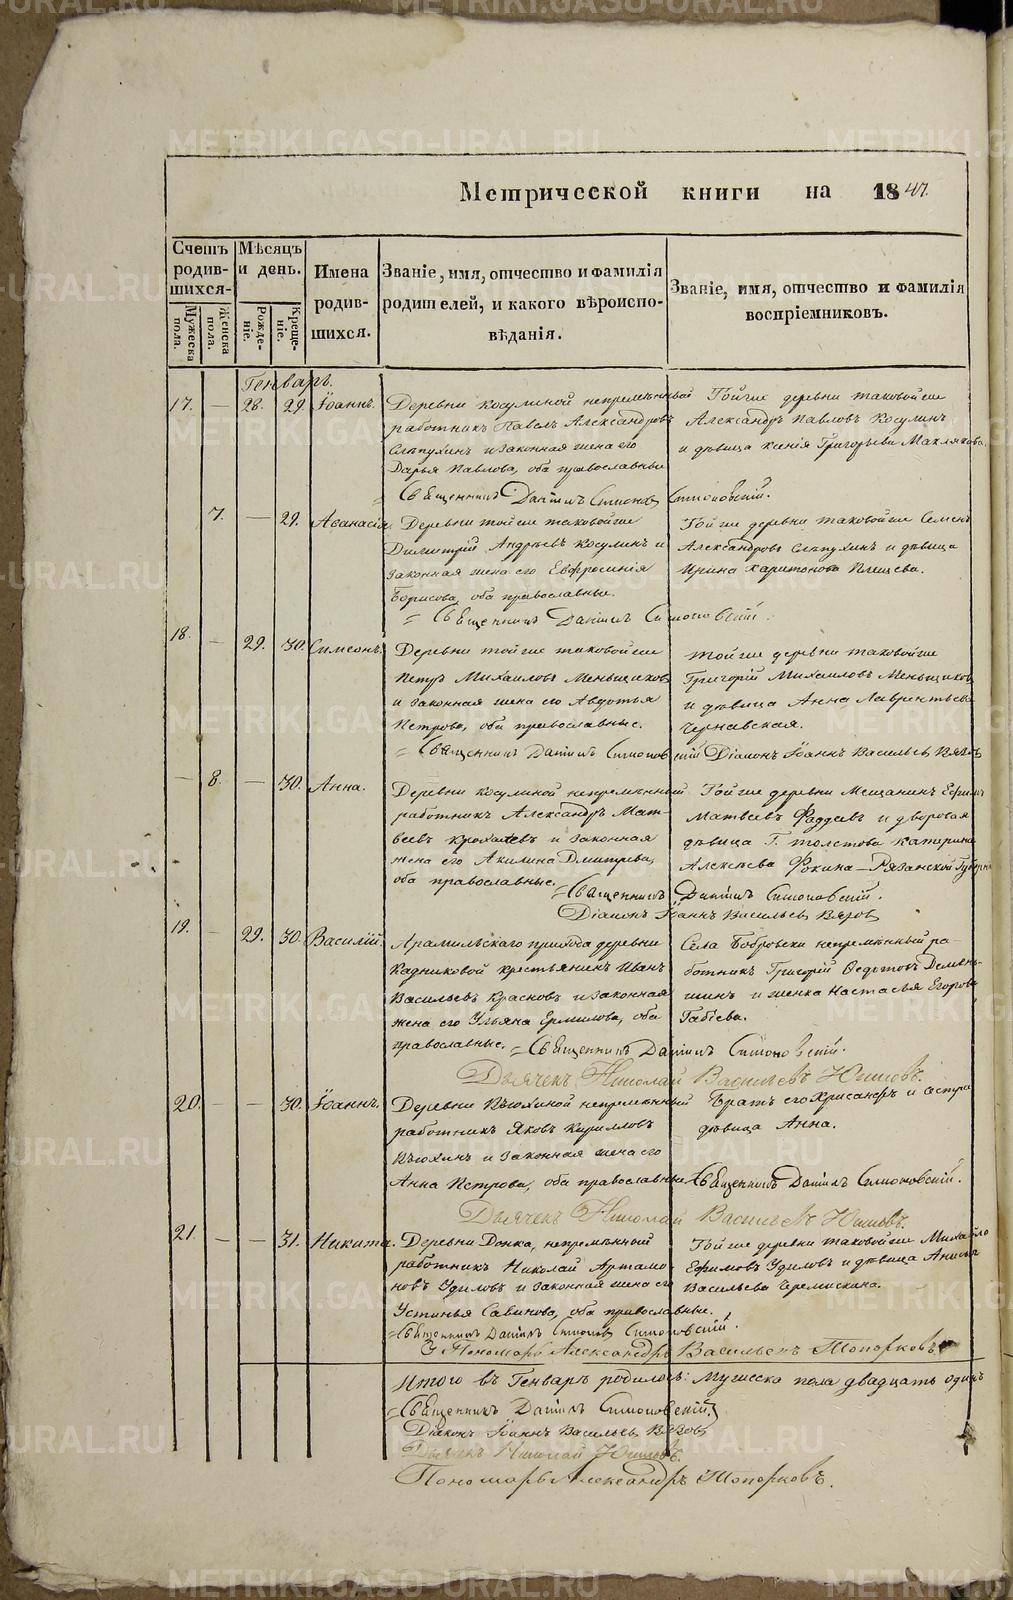 METRIKI.GASO-URAL.RU
Метрической книги на 1847.
Счетъ родив-шихся.
Мѣсяцъ и день.
Имена родив-шихся.
Званіе, имя, отчество и фамилія родителей, и какого вѣроиспо-вѣданія.
Званіе, имя, отчество и фамилія воспріемниковъ.
Мужеска пола.
Женска пола.
Рожде-ніе.
Креще-ніе.
Генварь.
17. — 28. 29. Іоаннъ.
Деревни Косулиной непремѣнный
работникъ Павелъ Александровъ
Слѣпухинъ и законная жена его
Дарья Павлова, оба православные
Тойже деревни таковойже
Александръ Павловъ Косулинъ
и дѣвица Ксенія Григорьева
Священникъ Даніилъ
7. — 29.
Деревни тойже таковойже
Димитрій Андрѣевъ Косулинъ и
законная жена его Евфросинія
Борисова, оба православные.
Тойже деревни таковойже Семенъ
Александровъ Слѣпухинъ и дѣвица
Ирина Харитонова
Священникъ Даніилъ
18. — 29. 30. Симеонъ.
Деревни тойже таковойже
Петръ Михаиловъ Меньщиковъ
и законная жена его Авдотья
Петрова, оба православные.
тойже деревни таковойже
Григорій Михаиловъ Меньщиковъ
и дѣвица Анна Лаврентьева
Чернавская.
Священникъ Даніилъ Діаконъ Іоаннъ Васильевъ
— 8. — 30. Анна.
Деревни Косулиной непремѣнный
работникъ Александръ Мат-
веевъ и законная
жена его Акилина Дмитрева,
оба православные.
Тойже деревни Мещанинъ Ефимъ
Матвеевъ Фаддеевъ и дворовая
дѣвица Г. Толстова Катерина
Алексѣева Фокина — Рязанской Губерніи
Священникъ Даніилъ
Діаконъ Іоаннъ Васильевъ
19. — 29. 30. Василій.
Арамильскаго прихода деревни
Кадниковой крестьянинъ Иванъ
Васильевъ Красновъ и законная
жена его Ульяна Ермилова, оба
православные.
Села Бобровски непремѣнный ра-
ботникъ Григорій Ѳедотовъ Демень-
шинъ и женка Настасья Егорова
Священникъ Даніилъ
Дьячекъ Николай Васильевъ
20. — — 30. Іоаннъ.
непремѣнный
работникъ Яковъ Кирилловъ
и законная жена его
Анна Петрова, оба православные
Братъ его Хрисанфъ и сестра
дѣвица Анна.
Священникъ Даніилъ
Дьячекъ Николай Васильевъ
21. — — 31. Никита.
Деревни непремѣнный
работникъ Николай Артамо-
новъ Удиловъ и законная жена его
Устинья Савинова, оба православные.
Тойже деревни таковойже Михайло
Ефимовъ Удиловъ и дѣвица Анисья
Васильева Черемискина.
Священникъ Даніилъ
Пономарь Александръ Васильевъ Топорковъ
Итого въ Генварѣ родилось: Мужеска пола двадцать одинъ
Священникъ Даніилъ
Діаконъ Іоаннъ Васильевъ
Дьячекъ Николай
Пономарь Александръ Топорковъ.